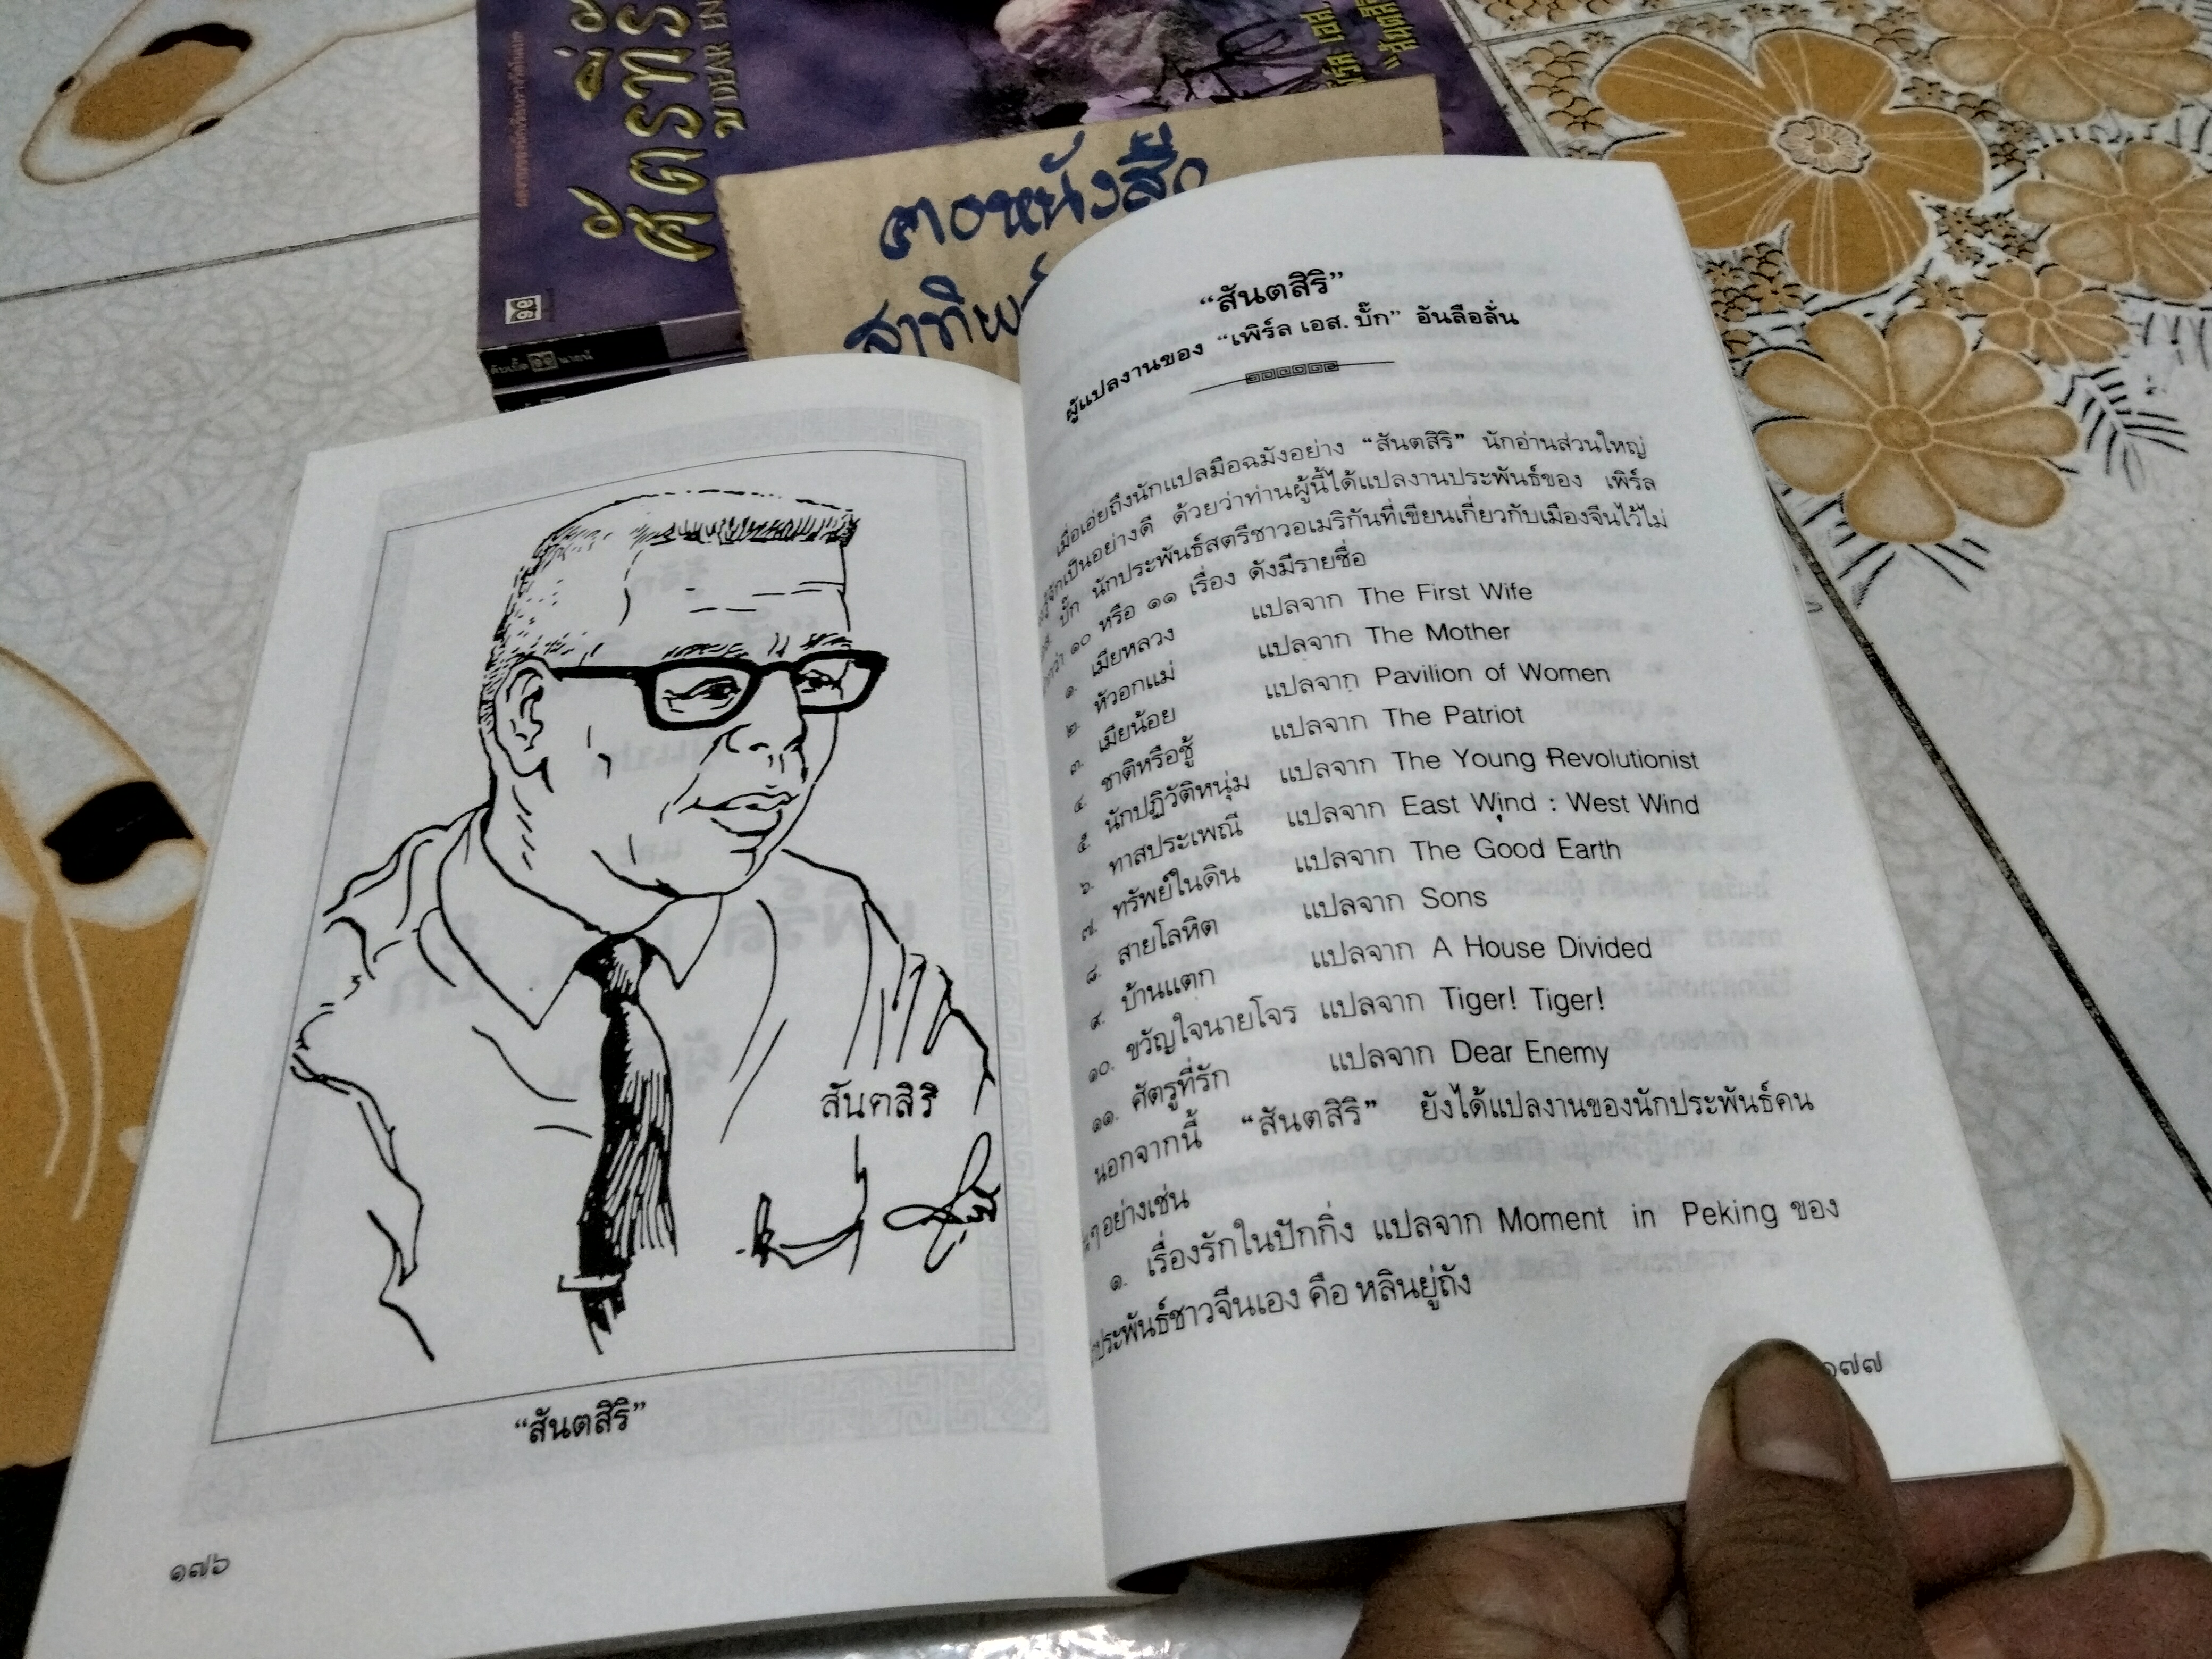 ศัตรูที่รัก
ดับเบิ้ล นายน์
คอหนังสือ
สันตสิริ
“สันตสิริ”
๑๗๖
“สันตสิริ”
ผู้แปลงานของ “เพิร์ล เอส. บั๊ก” อันลือลั่น
เมื่อเอ่ยถึงนักแปลมือฉมังอย่าง “สันตสิริ” นักอ่านส่วนใหญ่
รู้จักเป็นอย่างดี ด้วยว่าท่านผู้นี้ได้แปลงานประพันธ์ของ เพิร์ล
เอส. บั๊ก นักประพันธ์สตรีชาวอเมริกันที่เขียนเกี่ยวกับเมืองจีนไว้ไม่
กว่า ๑๐ หรือ ๑๑ เรื่อง ดังมีรายชื่อ
๑. เมียหลวง แปลจาก The First Wife
๒. หัวอกแม่ แปลจาก The Mother
๓. เมียน้อย แปลจาก Pavilion of Women
๔. ชาติหรือชู้ แปลจาก The Patriot
๕. นักปฏิวัติหนุ่ม แปลจาก The Young Revolutionist
๖. ทาสประเพณี แปลจาก East Wind : West Wind
๗. ทรัพย์ในดิน แปลจาก The Good Earth
๘. สายโลหิต แปลจาก Sons
๙. บ้านแตก แปลจาก A House Divided
๑๐. ขวัญใจนายโจร แปลจาก Tiger! Tiger!
๑๑. ศัตรูที่รัก แปลจาก Dear Enemy
นอกจากนี้ “สันตสิริ” ยังได้แปลงานของนักประพันธ์คน
นๆ อย่างเช่น
๑. เรื่องรักในปักกิ่ง แปลจาก Moment in Peking ของ
ประพันธ์ชาวจีนเอง คือ หลินยู่ถัง
๑๗๗